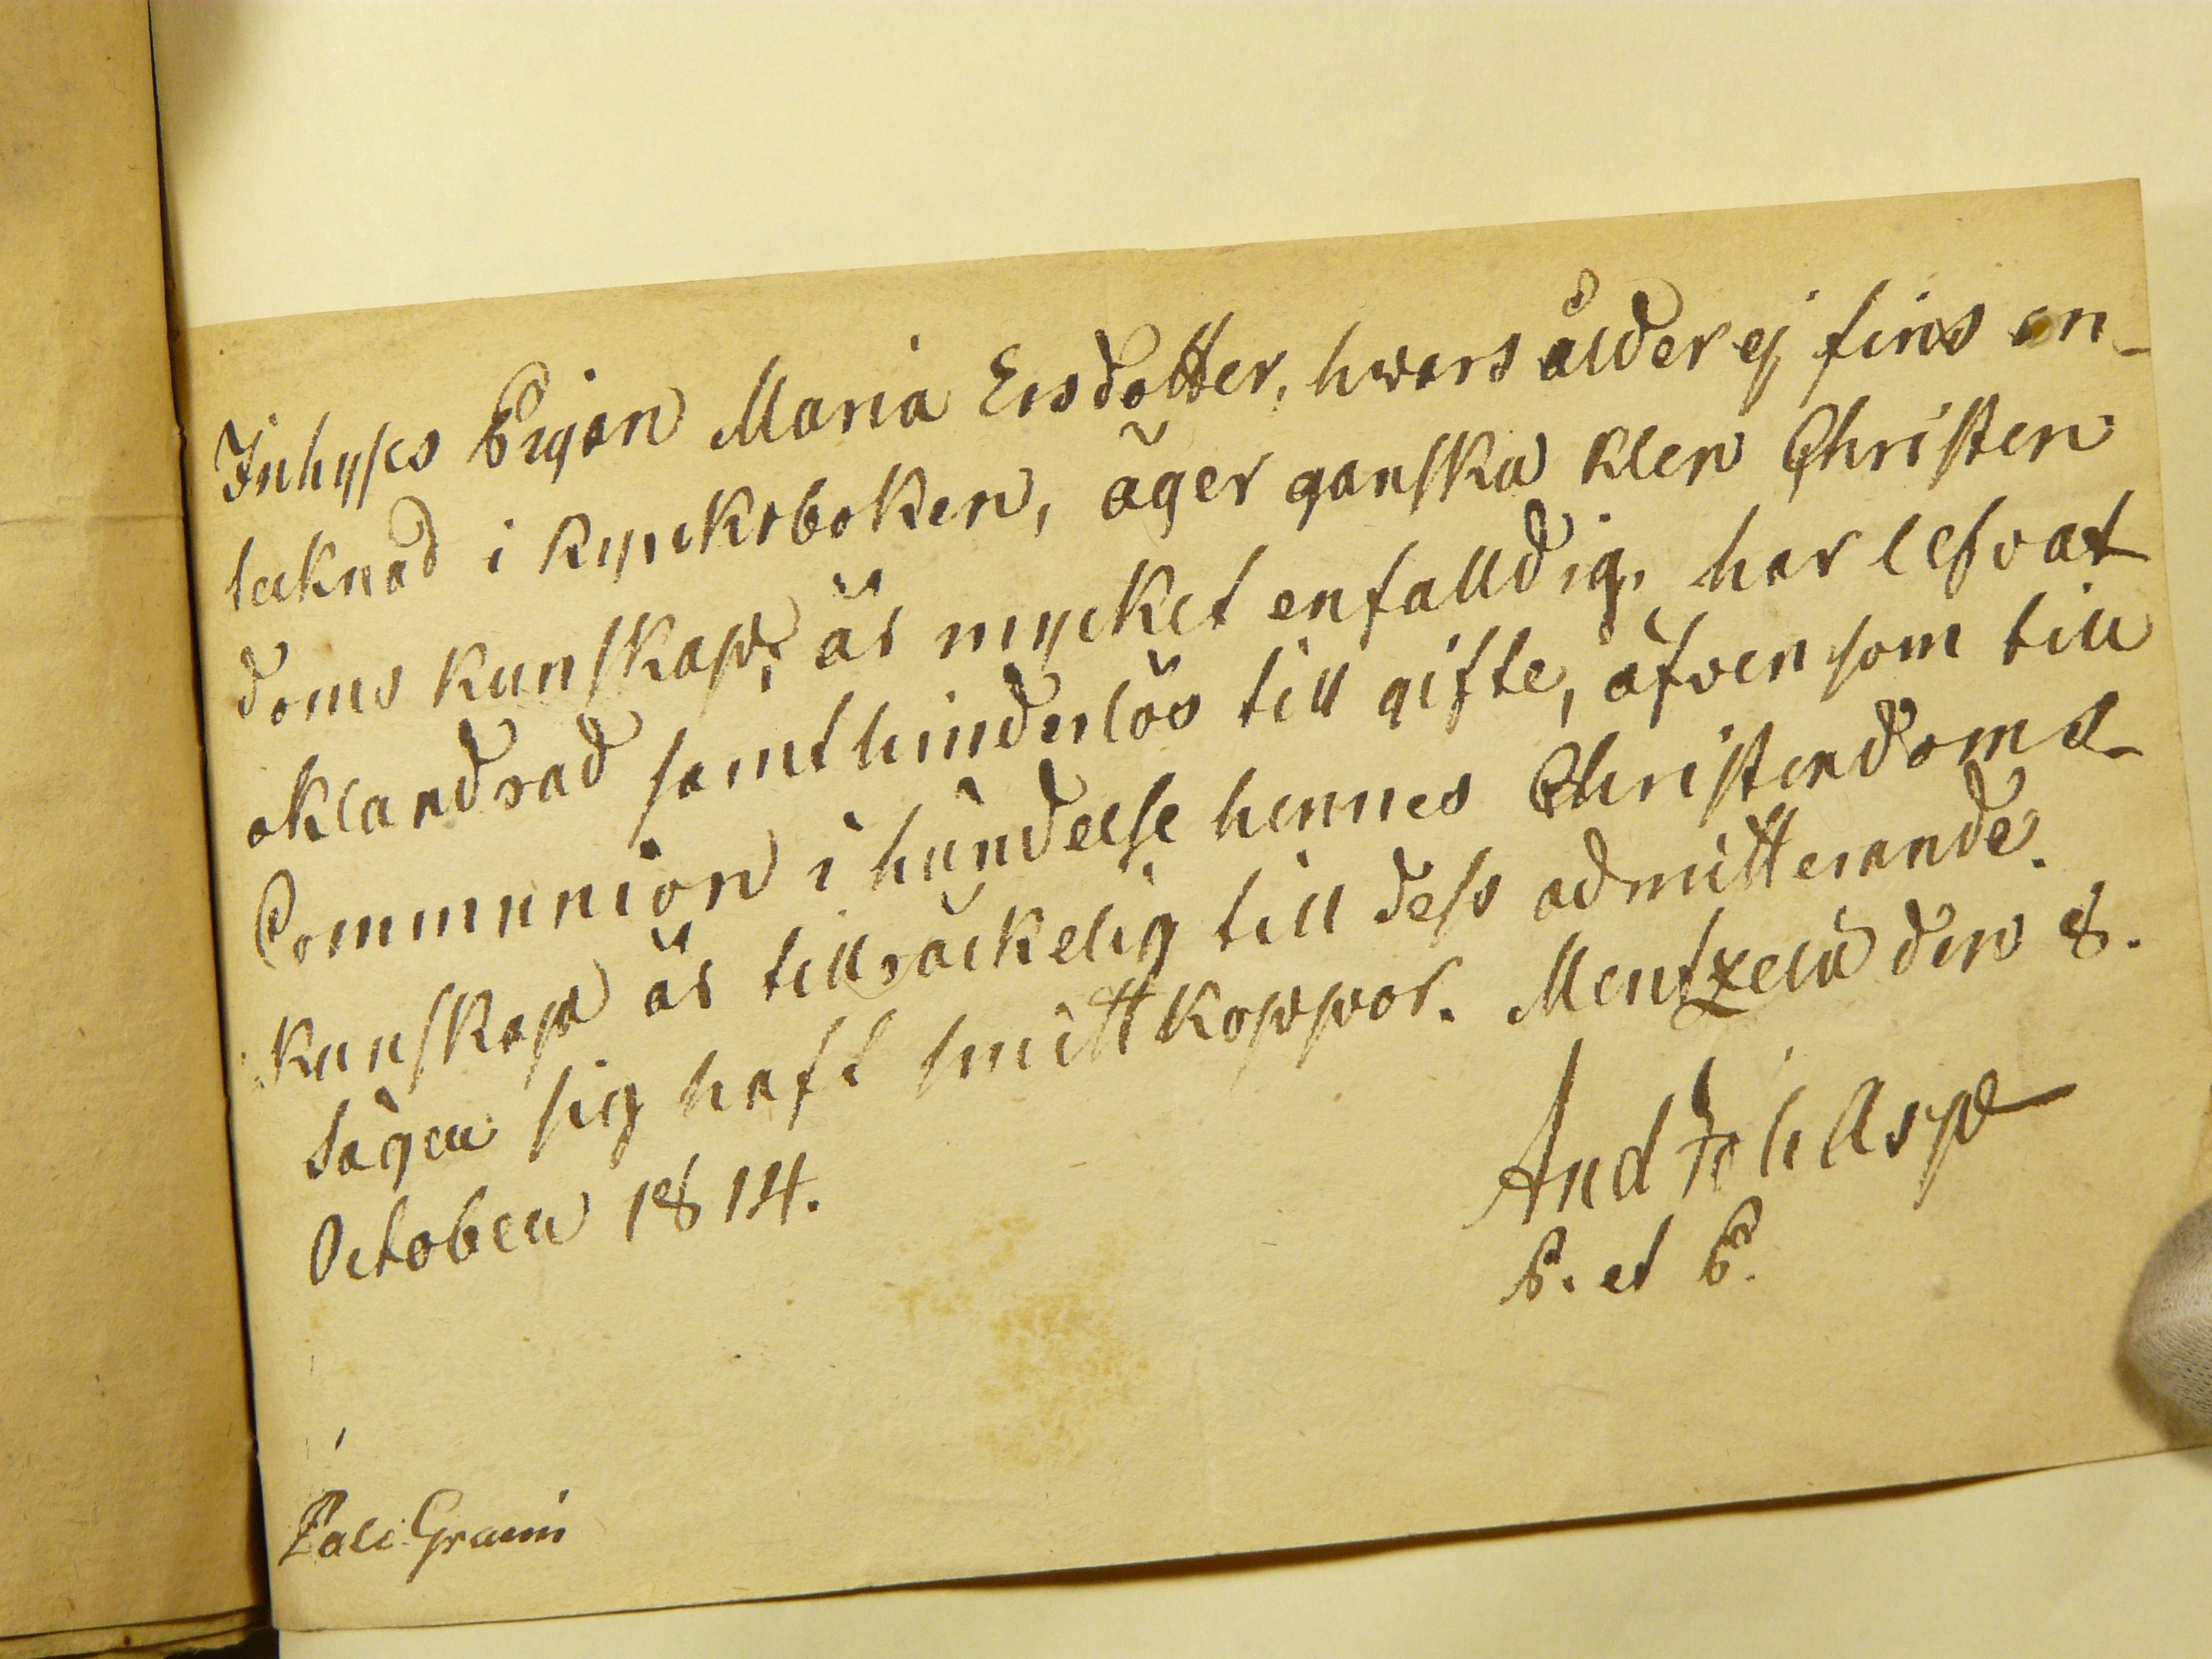 Inhyses Pigan Maria Ersdotter, hvars ålder ej fins an-
tecknad i Kyrckoboken, äger ganska klen Christen
doms kunskap, är mycket enfalldig, har lefvat
oklandrad samt hinderlös till gifte, äfven som till
Communion i händelse hennes Christendoms
kunskap är tillräckelig till dess admitterande.
Säger sig haft smittkoppor. Mentzelä den 8.
October 1814.
And Joh Asp
P. et P.